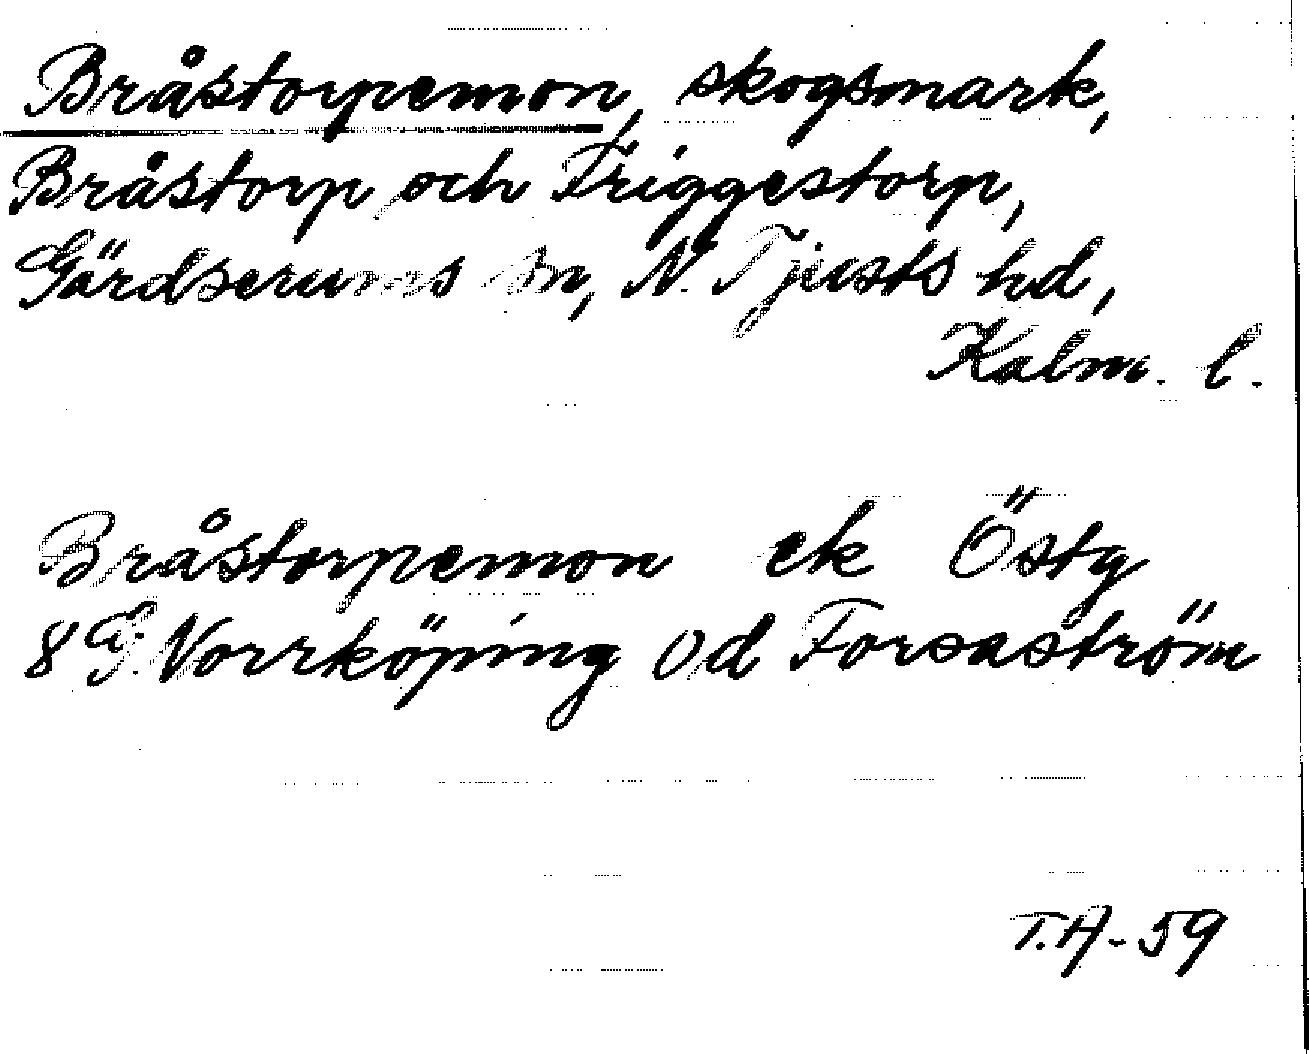 Bråstorpemon, skogsmark,
Bråstorp och Friggestorp,
Gärdserums sn, N. Tjusts hd,
Kalm. l.
Bråstorpemon ek Östg
8 G. Norrköping Od Forsaström
T.A-59